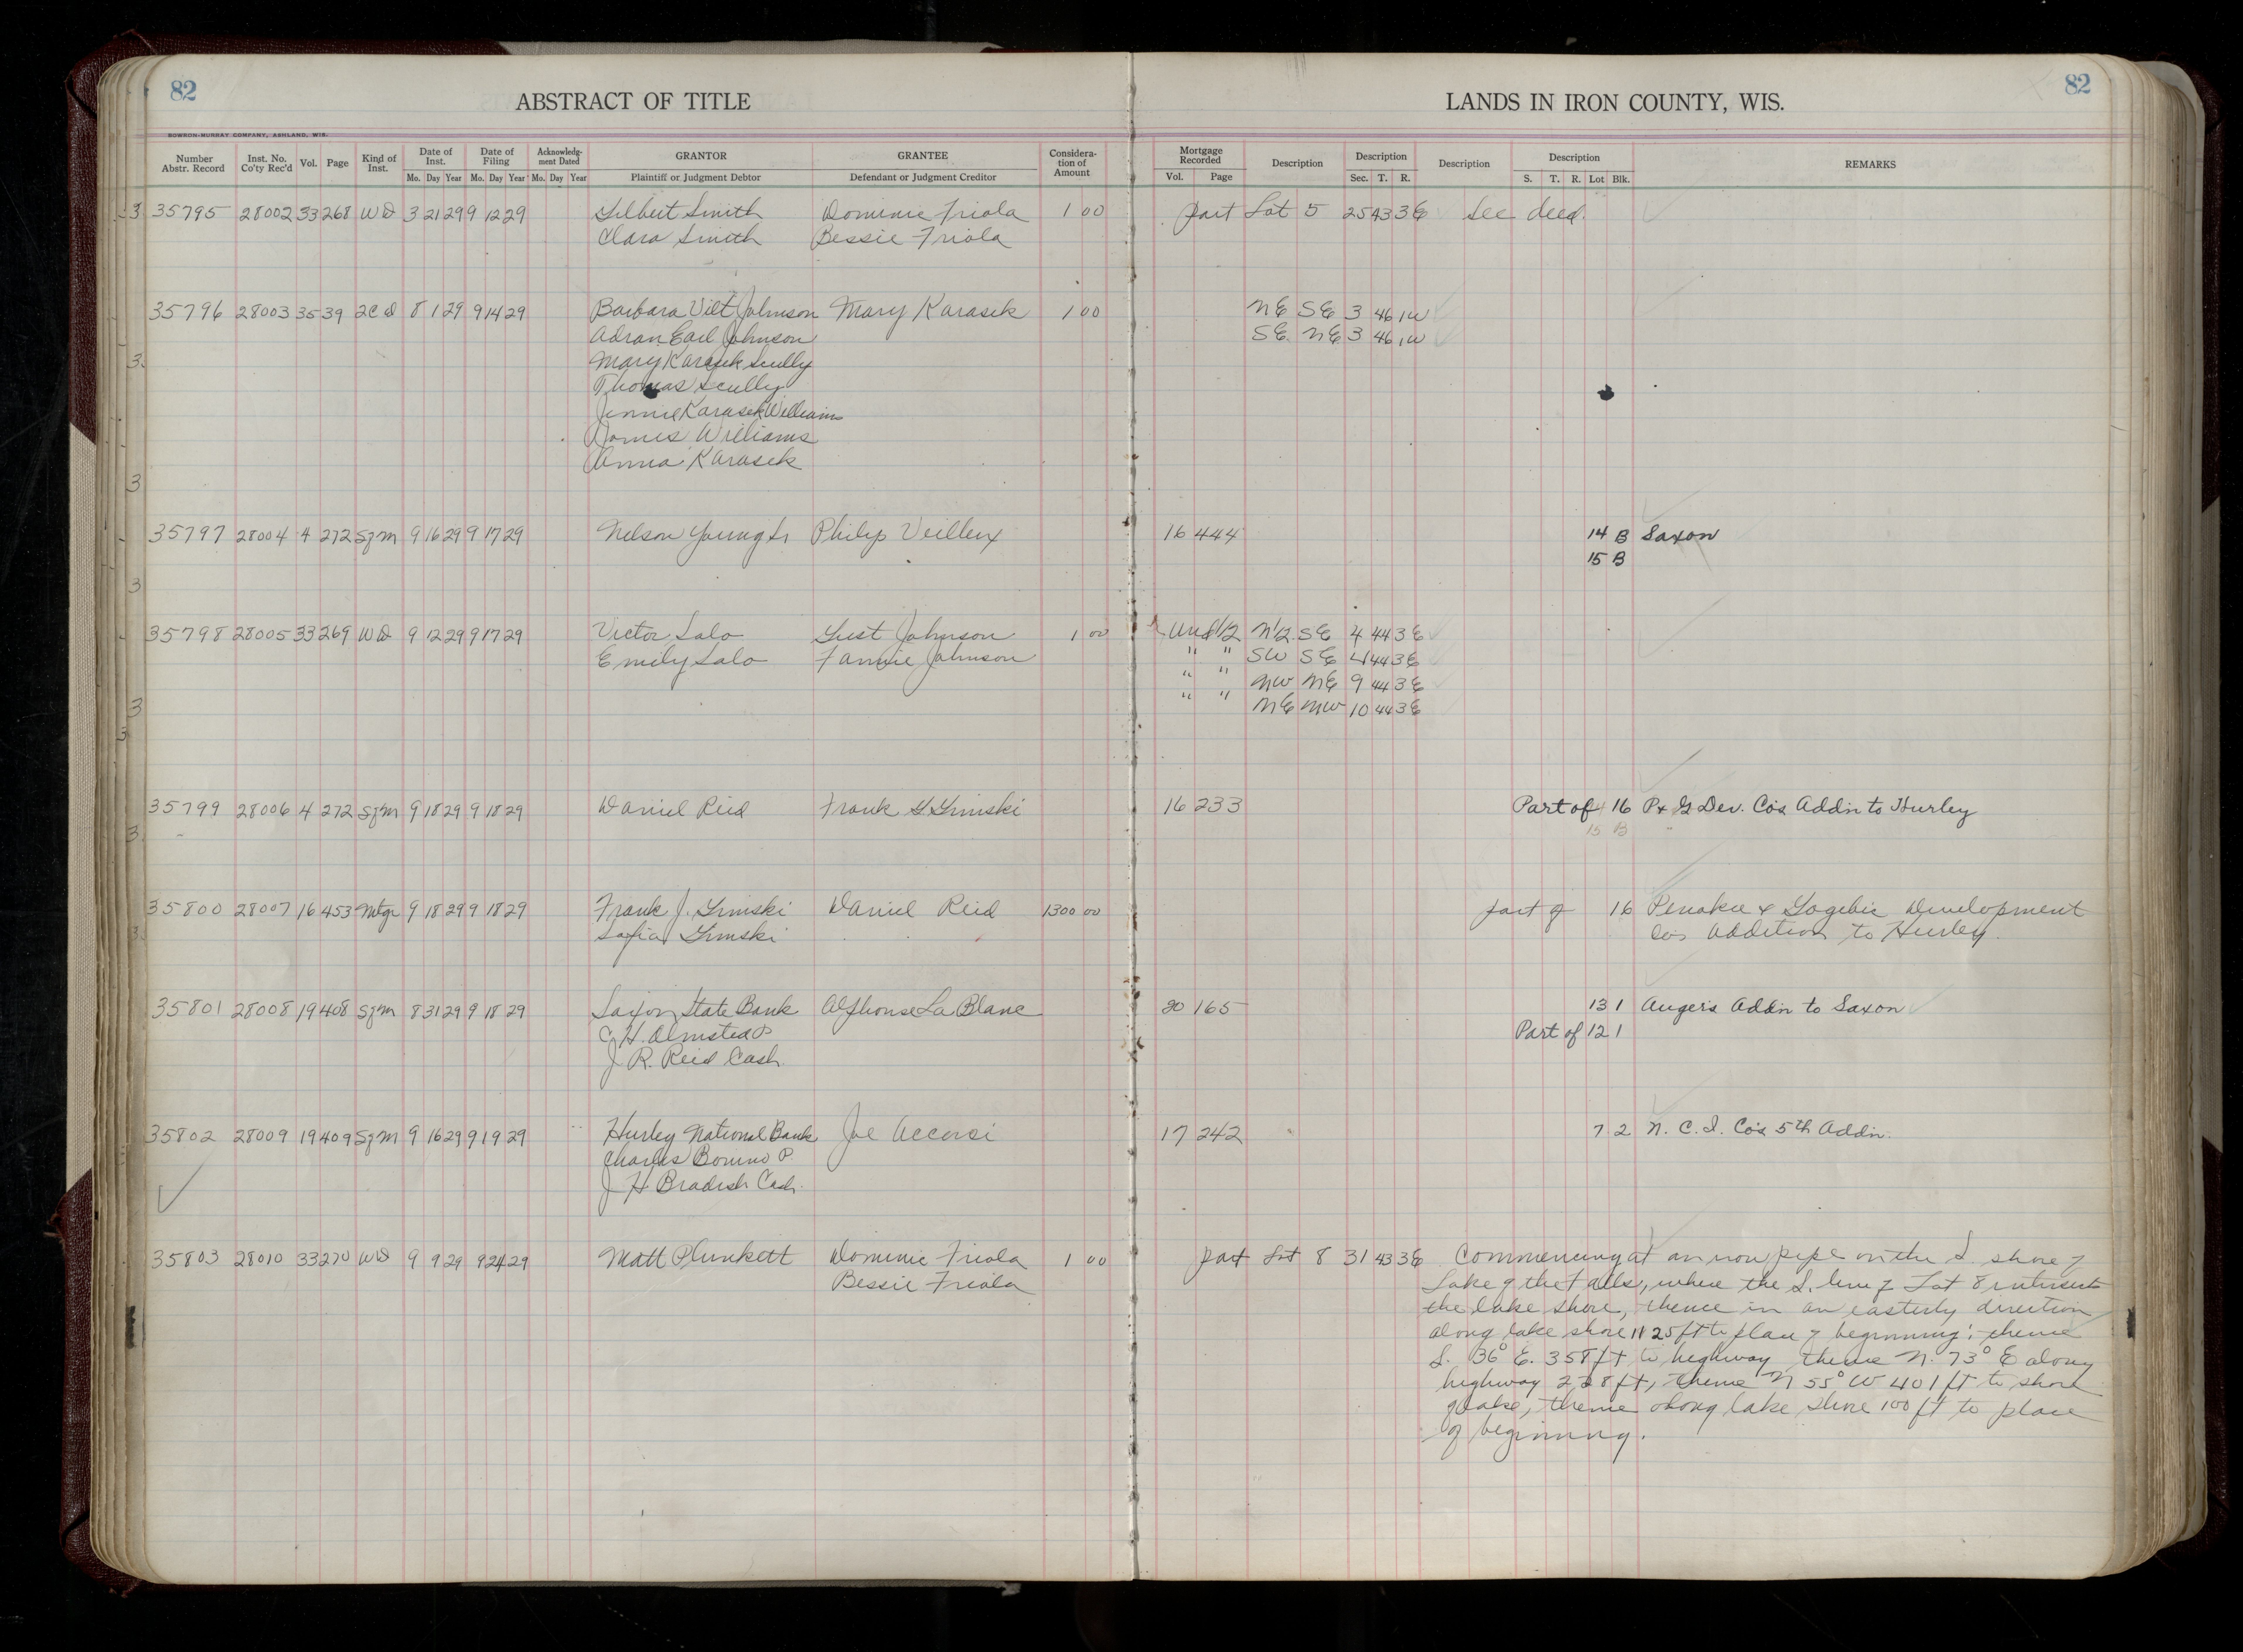 82
82
ABSTRACT OF TITLE
LANDS IN IRON COUNTY, WIS.
BOWRON-MURRAY COMPANY, ASHLAND, WIS.
Number Abstr. Record Inst. No. Co'ty Rec'd Vol. Page Kind of Inst. Date of Inst. Date of Filing Acknowledg-ment Dated GRANTOR GRANTEE Considera-tion of Amount Mortgage Recorded Description Description Description Description REMARKS
Mo. Day Year Mo. Day Year Mo. Day Year Plaintiff or Judgment Debtor Defendant or Judgment Creditor Vol. Page Sec. T. R. S. T. R. Lot Blk.
35795 28002 33 268 WD 3 21 29 9 12 29 Gilbert Smith Dominic Friola 1 00 part Lot 5 25 43 3E See deed
Clara Smith Bessie Friola
35796 28003 35 39 2CD 8 1 29 9 14 29 Barbara Vilt Johnson Mary Karasek 1 00 NE SE 3 46 1W
Adran Earl Johnson SE NE 3 46 1W
Mary Karasek Scully
Thomas Scully
Jennie Karasek Williams
James Williams
Anna Karasek
35797 28004 4 272 Sgm 9 16 29 9 17 29 Nelson Young Sr Philip Veilleux 16 444 14 B Saxon
15 B
35798 28005 33 269 WD 9 12 29 9 17 29 Victor Salo Gust Johnson 1 00 Und 1/2 N1/2 SE 4 44 3E
Emily Salo Fannie Johnson " " SW SE 4 44 3E
" " NW NE 9 44 3E
" " NE NW 10 44 3E
35799 28006 4 272 Sgm 9 18 29 9 18 29 Daniel Reid Frank Grimski 16 233 Part of 16 P & G Dev. Co's Addn to Hurley
15 B
35800 28007 16 453 Mtge 9 18 29 9 18 29 Frank J. Grimski Daniel Reid 1300 00 part of 16 Penokee & Gogebic Development
Sofia Grimski Co's Addition to Hurley
35801 28008 19 408 Sgm 8 31 29 9 18 29 Saxon State Bank Alphonse La Blanc 20 165 13 1 Auger's Addn to Saxon
C. H. Olmstead P Part of 12 1
J. R. Reid Cash.
35802 28009 19 409 Sgm 9 16 29 9 19 29 Hurley National Bank Joe Accorsi 17 242 7 2 N. C. I. Co's 5th Addn.
Charles Bonino P.
J H Bradish Cash.
35803 28010 33 270 WD 9 9 29 9 24 29 Matt Plunkett Dominic Friola 1 00 part Lot 8 31 43 3E Commencing at an iron pipe on the S shore of
Bessie Friola Lake of the Falls, where the S. line of Lot 8 intersects
the lake shore, thence in an easterly direction
along lake shore 1125 ft to place of beginning; thence
S. 36° E. 358 ft to highway thence N. 73° E along
highway 228 ft, thence N 55° W 401 ft to shore
of lake, thence along lake shore 100 ft to place
of beginning.